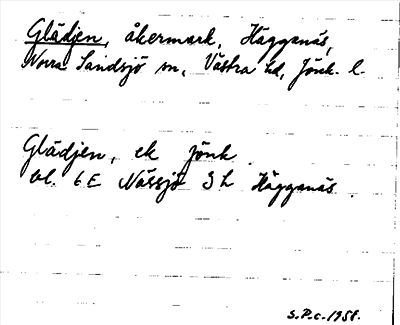 Glädjen, åkermark, Hägganäs,
Norra Sandsjö sn, Västra hd, Jönk. l.
Glädjen, ek jönk
bl. 6E Nässjö S L Hägganäs.
S.P.c. 1958.